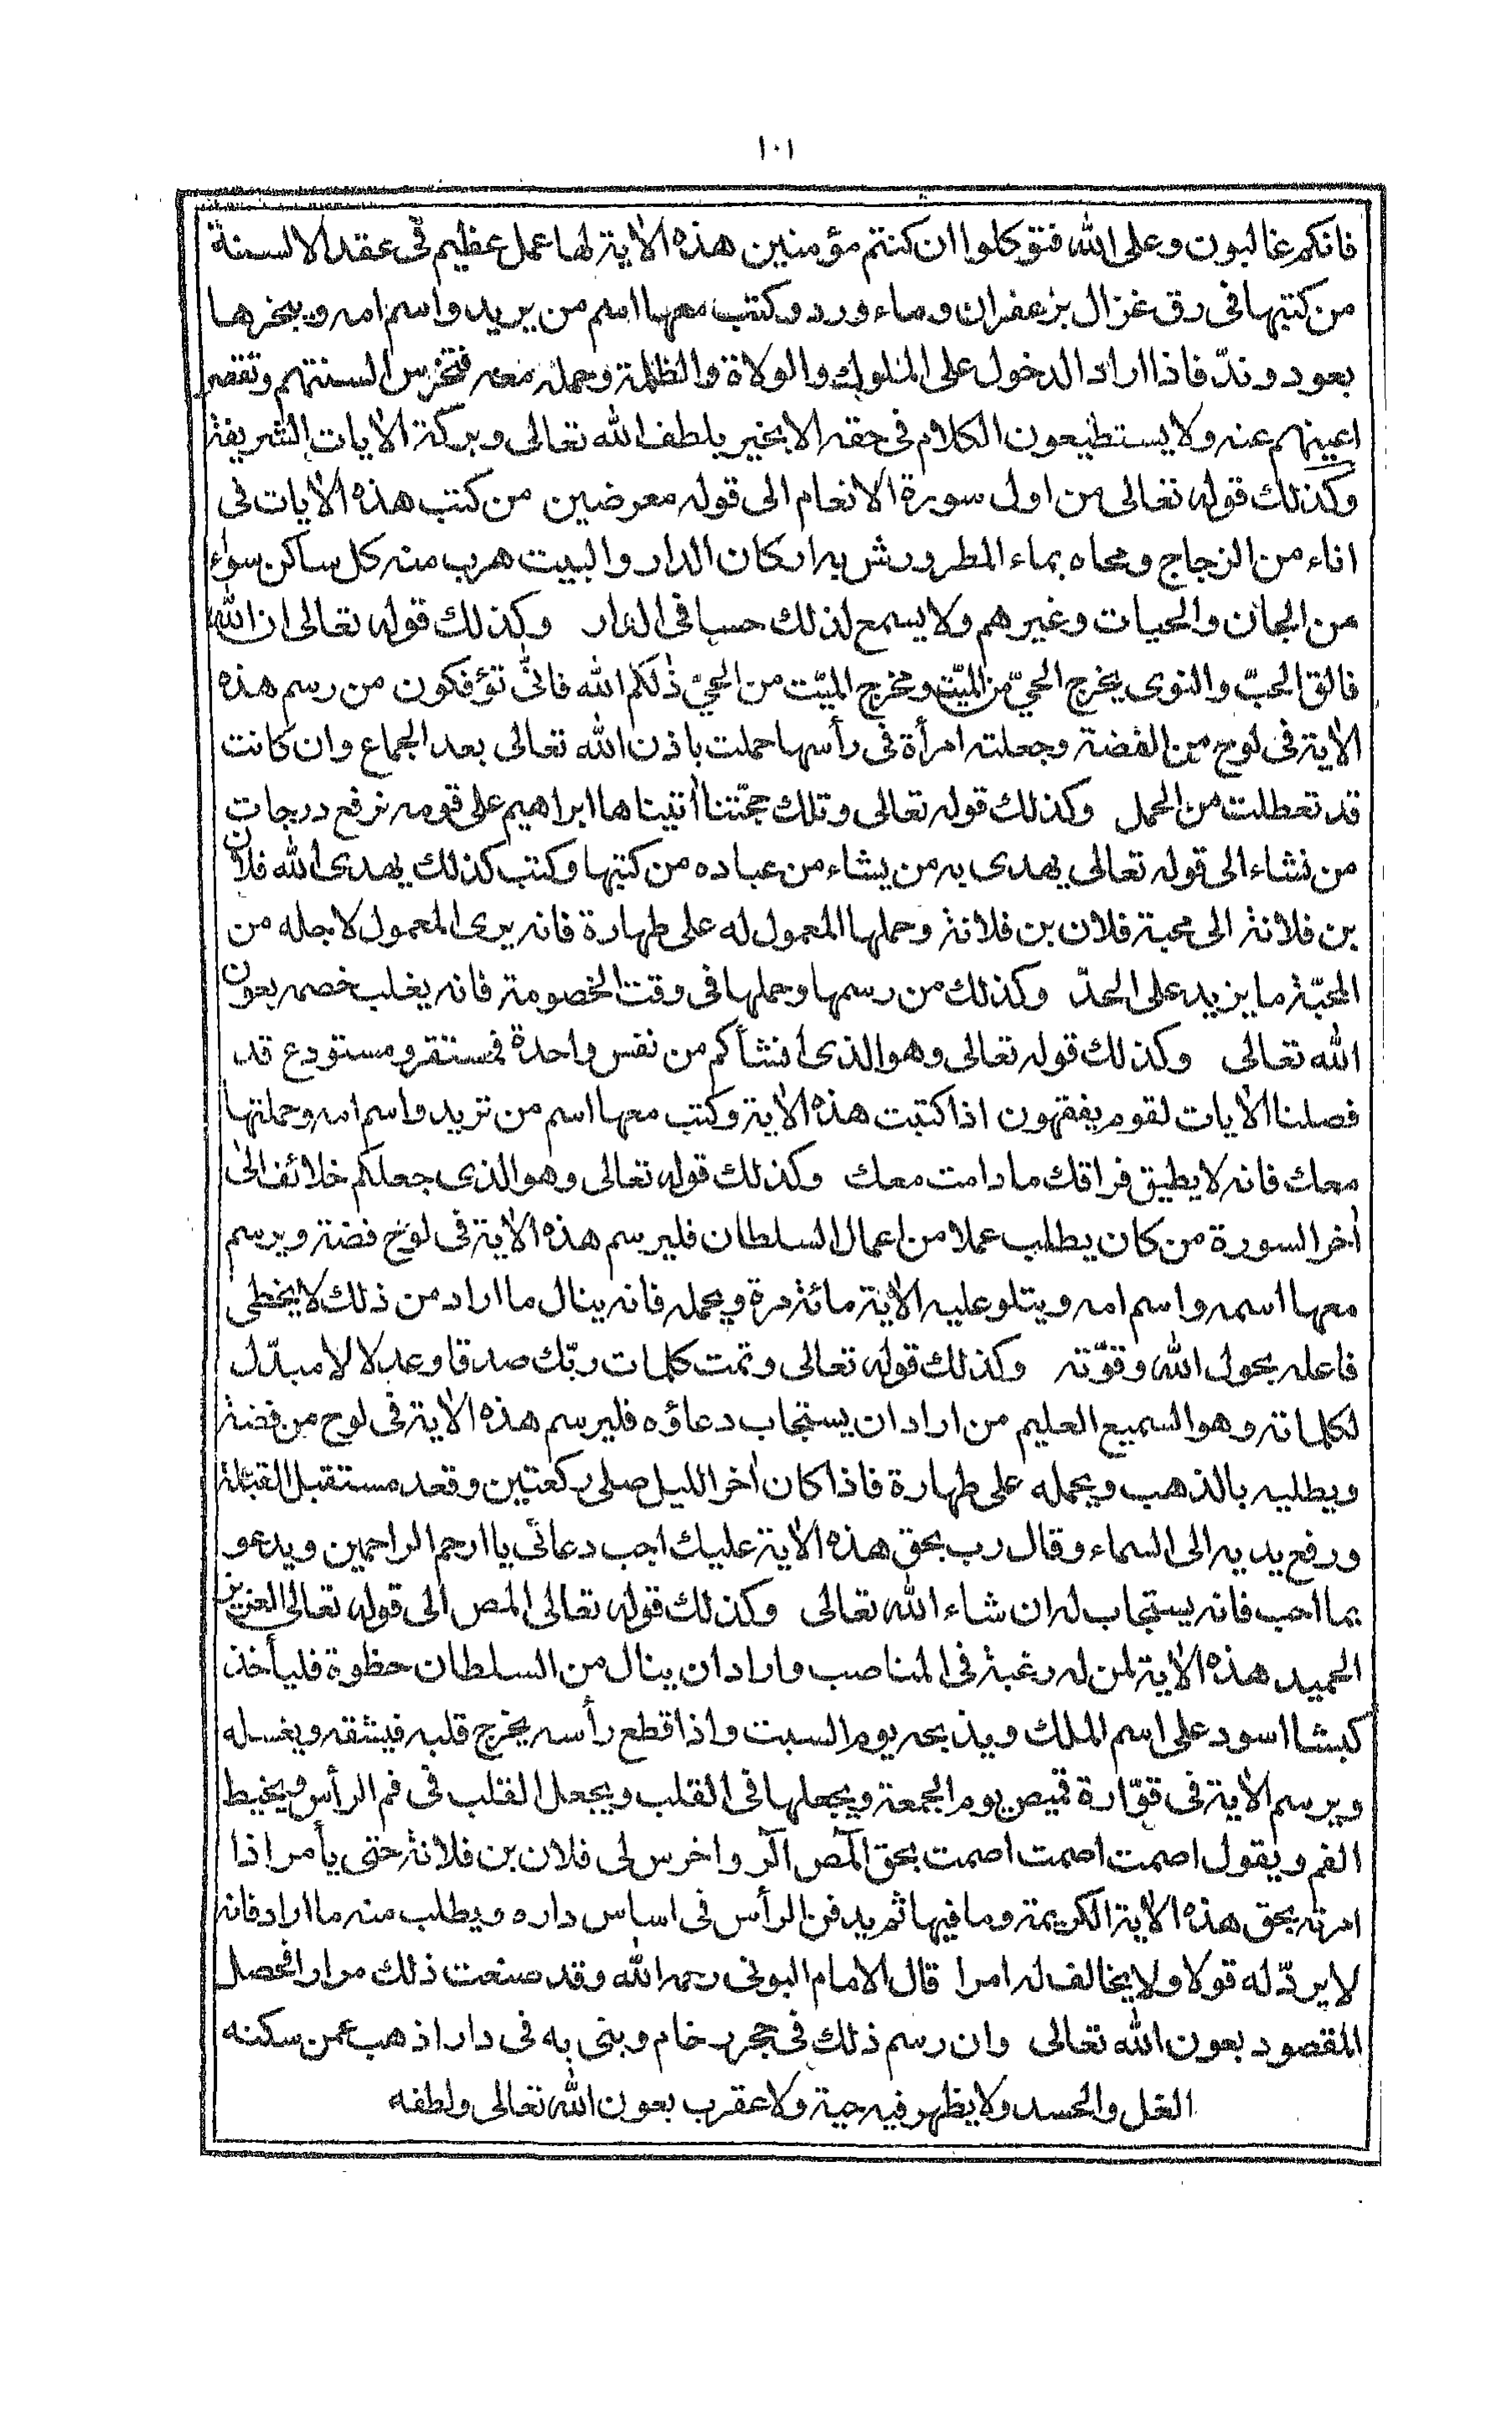 ١٠١
فانكم غالبون وعلى الله فتوكلوا ان كنتم مؤمنين هذه الأية لها عمل عظيم فى عقد الالسنة
من كتبها فى رق غزال بزعفران وماء ورد وكتب معها اسم من يريد واسم امه ويبخرها
بعود وندّ فاذا اراد الدخول على الملوك والولاة والظلمة وحمله معه فتخرس السنتهم وتقصر
اعينهم عنه ولا يستطيعون الكلام فى حقه الا بخير بلطف الله تعالى وبركة الأيات الشريفة
وكذلك قوله تعالى من اول سورة الانعام الى قوله معرضين من كتب هذه الأيات فى
اناء من الزجاج ومحاه بماء المطر ورش به اركان الدار والبيت هرب منه كل ساكن سواء
من الجان والحيات وغيرهم ولا يسمع لذلك حسا فى الدار وكذلك قوله تعالى ان الله
فالق الحبّ والنوى يخرج الحىّ من الميّت ومخرج الميّت من الحىّ ذلكم الله فانّى تؤفكون من رسم هذه
الأية فى لوح من الفضة وجعلته امرأة فى رأسها حملت باذن الله تعالى بعد الجماع وان كانت
قد تعطلت من الحمل وكذلك قوله تعالى وتلك حجّتنا أتيناها ابراهيم على قومه نرفع درجات
من نشاء الى قوله تعالى يهدى به من يشاء من عباده من كتبها وكتب كذلك يهدى الله فلان
بن فلانة الى محبة فلان بن فلانة وحملها المعمول له على طهارة فانه يرى المعمول لاجله من
المحبّة ما يزيد على الحدّ وكذلك من رسمها وحملها فى وقت الخصومة فانه يغلب خصمه بعون
الله تعالى وكذلك قوله تعالى وهو الذى انشأكم من نفس واحدة فمستقر ومستودع قد
فصلنا الأيات لقوم يفقهون اذا كتبت هذه الأية وكتب معها اسم من تريد واسم امه وحملتها
معك فانه لا يطيق فراقك ما دامت معك وكذلك قوله تعالى وهو الذى جعلكم خلائف الى
أخر السورة من كان يطلب عملا من اعمال السلطان فليرسم هذه الأية فى لوح فضة ويرسم
معها اسمه واسم امه ويتلو عليه الأية مائة مرة ويحمله فانه ينال ما اراد من ذلك لا يخطى
فاعله بحول الله وقوّته وكذلك قوله تعالى وتمت كلمات ربّك صدقا وعدلا لا مبدّل
لكلماته وهو السميع العليم من اراد ان يستجاب دعاؤه فليرسم هذه الأية فى لوح من فضة
ويطليه بالذهب ويحمله على طهارة فاذا كان أخر الليل صلى ركعتين وقعد مستقبل القبلة
ورفع يديه الى السماء وقال رب بحق هذه الأية عليك اجب دعائى يا ارحم الراحمين ويدعو
بما احب فانه يستجاب له ان شاء الله تعالى وكذلك قوله تعالى المص الى قوله تعالى العزيز
الحميد هذه الأية لمن له رغبة فى المناصب واراد ان ينال من السلطان حظوة فليأخذ
كبشا اسود على اسم الملك ويذبحه يوم السبت واذا قطع رأسه يخرج قلبه فيشقه ويغسله
ويرسم الأية فى قوّارة قميص يوم الجمعة ويجعلها فى القلب ويجعل القلب فى فم الرأس ويخيط
الفم ويقول اصمت اصمت اصمت بحق آلمص آلر واخرس لى فلان بن فلانة حتى يأمر اذا
امرته بحق هذه الأية الكريمة وما فيها ثم يدفن الرأس فى اساس داره ويطلب منه ما اراد فانه
لا يردّ له قولا ولا يخالف له امرا قال الامام البونى رحمه الله وقد صنعت ذلك مرارا فحصل
المقصود بعون الله تعالى وان رسم ذلك فى حجر رخام وبنى به فى دار اذهب عمن سكنه
الغل والحسد ولا يظهر فيه حية ولا عقرب بعون الله تعالى ولطفه